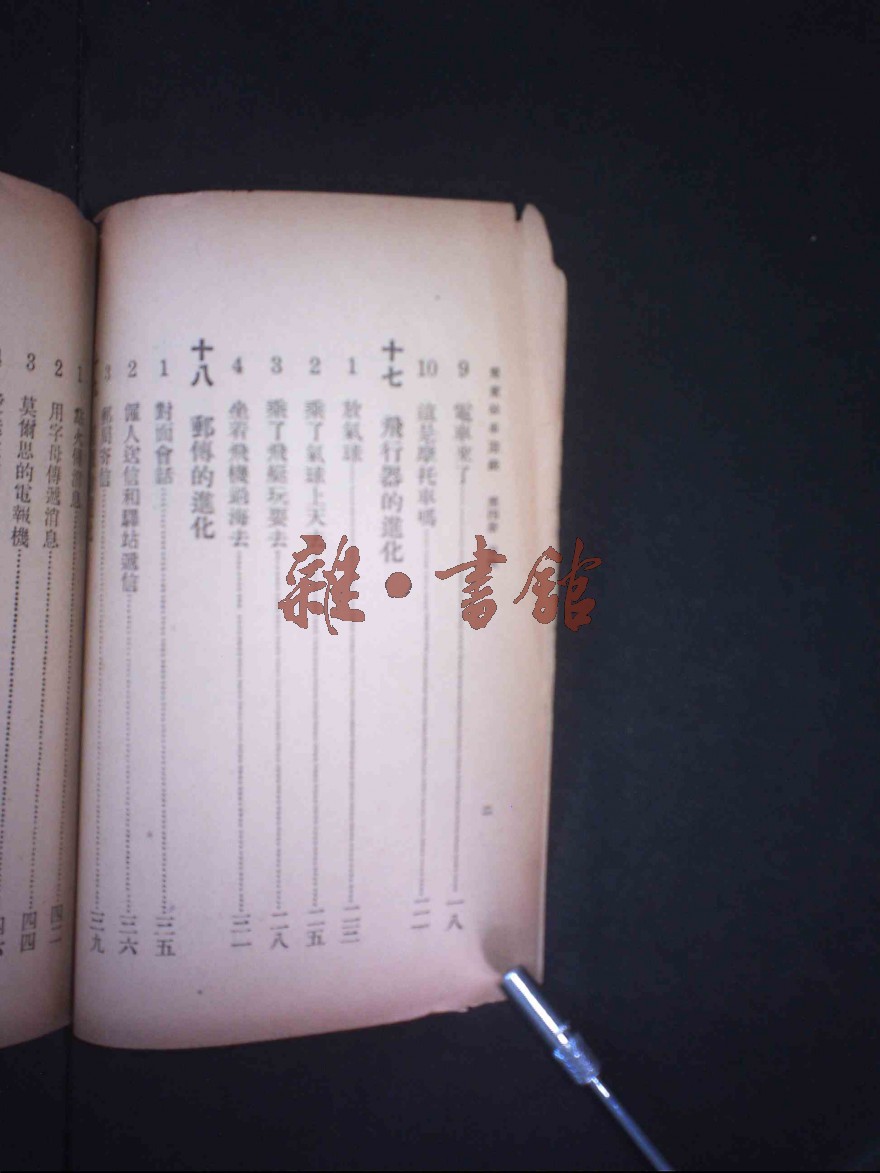 9 電車來了 一八
10 這是摩托車嗎 二一
十七 飛行器的進化
1 放氣球 二三
2 乘了氣球上天 二五
3 乘了飛艇玩耍去 二八
4 坐着飛機過海去 三一
十八 郵傳的進化
1 對面會話 三五
2 僱人送信和驛站遞信 三六
3 郵局寄信 三九
1 點火傳消息
2 用字母傳遞消息 四二
3 莫爾思的電報機 四四
4
雜·書館